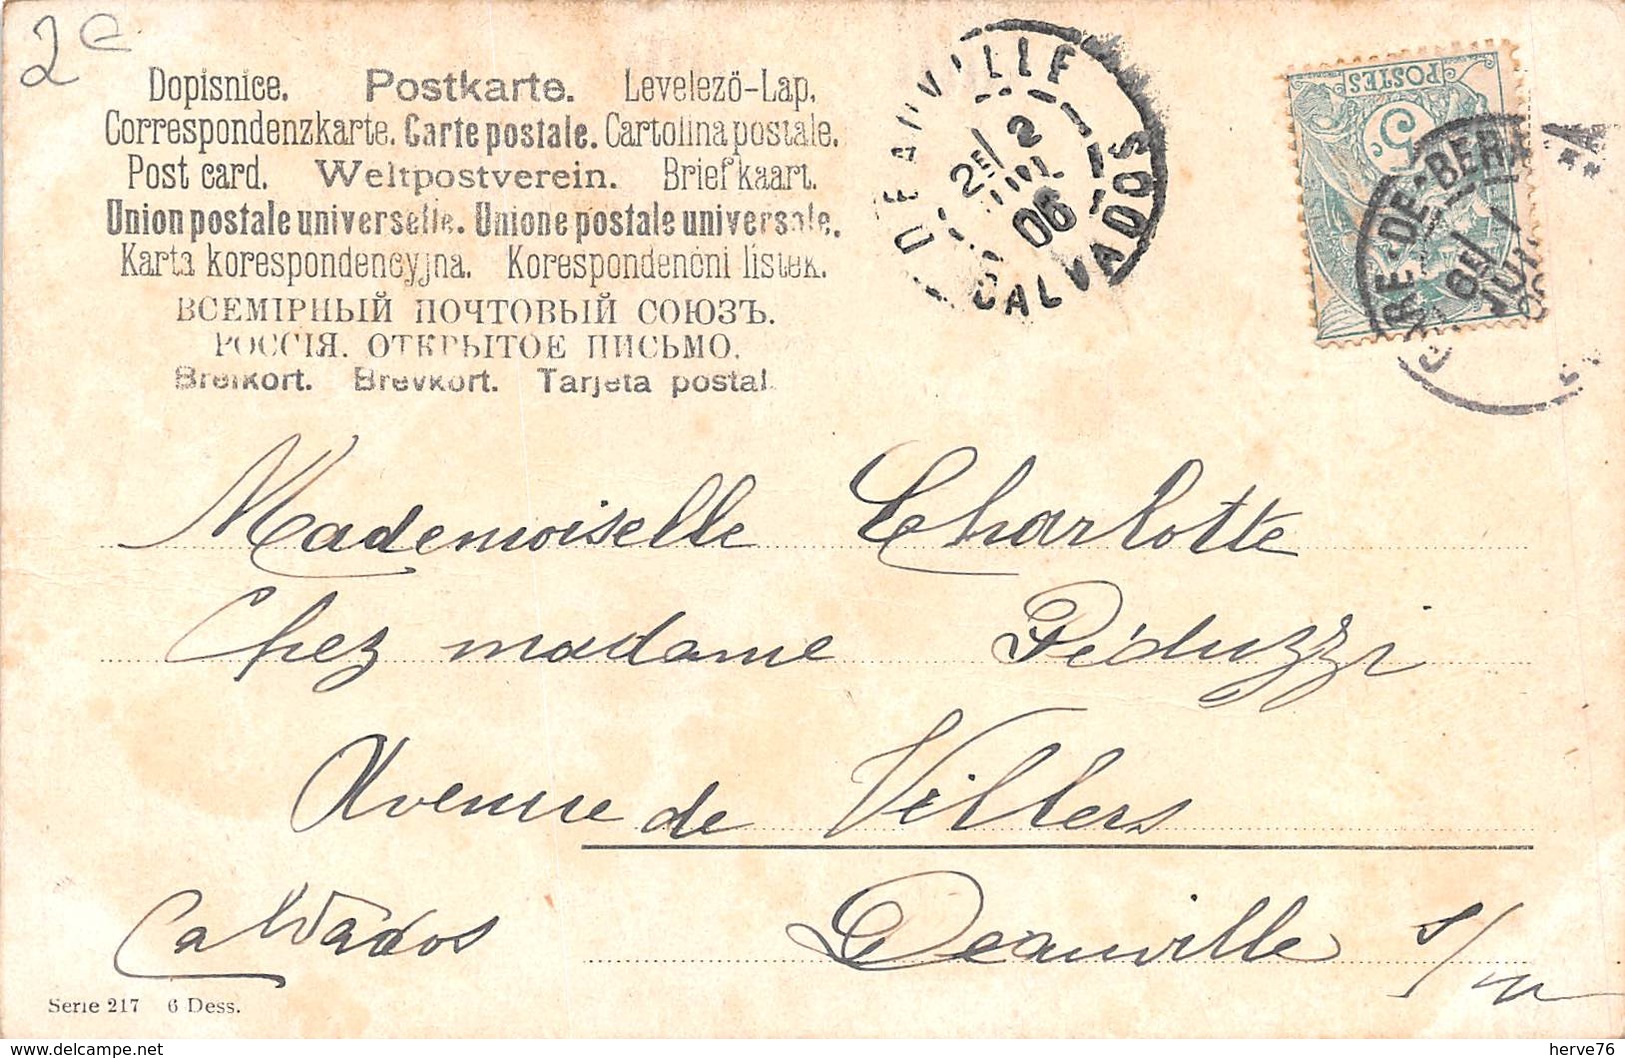 2€
Dopisnice. Postkarte. Levelező-Lap.
Correspondenzkarte. Carte postale. Cartolina postale.
Post card. Weltpostverein. Briefkaart.
Union postale universelle. Unione postale universale.
Karta korespondencyjna. Korespondenčni listek.
ВСЕМІРНЫЙ ПОЧТОВЫЙ СОЮЗЪ.
РОССІЯ. ОТКРЫТОЕ ПИСЬМО.
Brefkort. Brevkort. Tarjeta postal.
DEAUVILLE
25 / 2
JUIL
06
CALVADOS
POSTES
5
DE-BER
Mademoiselle Charlotte
Chez madame Péduzzi
Avenue de Villers
Calvados Deauville s/m
Serie 217 6 Dess.
www.delcampe.net
herve76